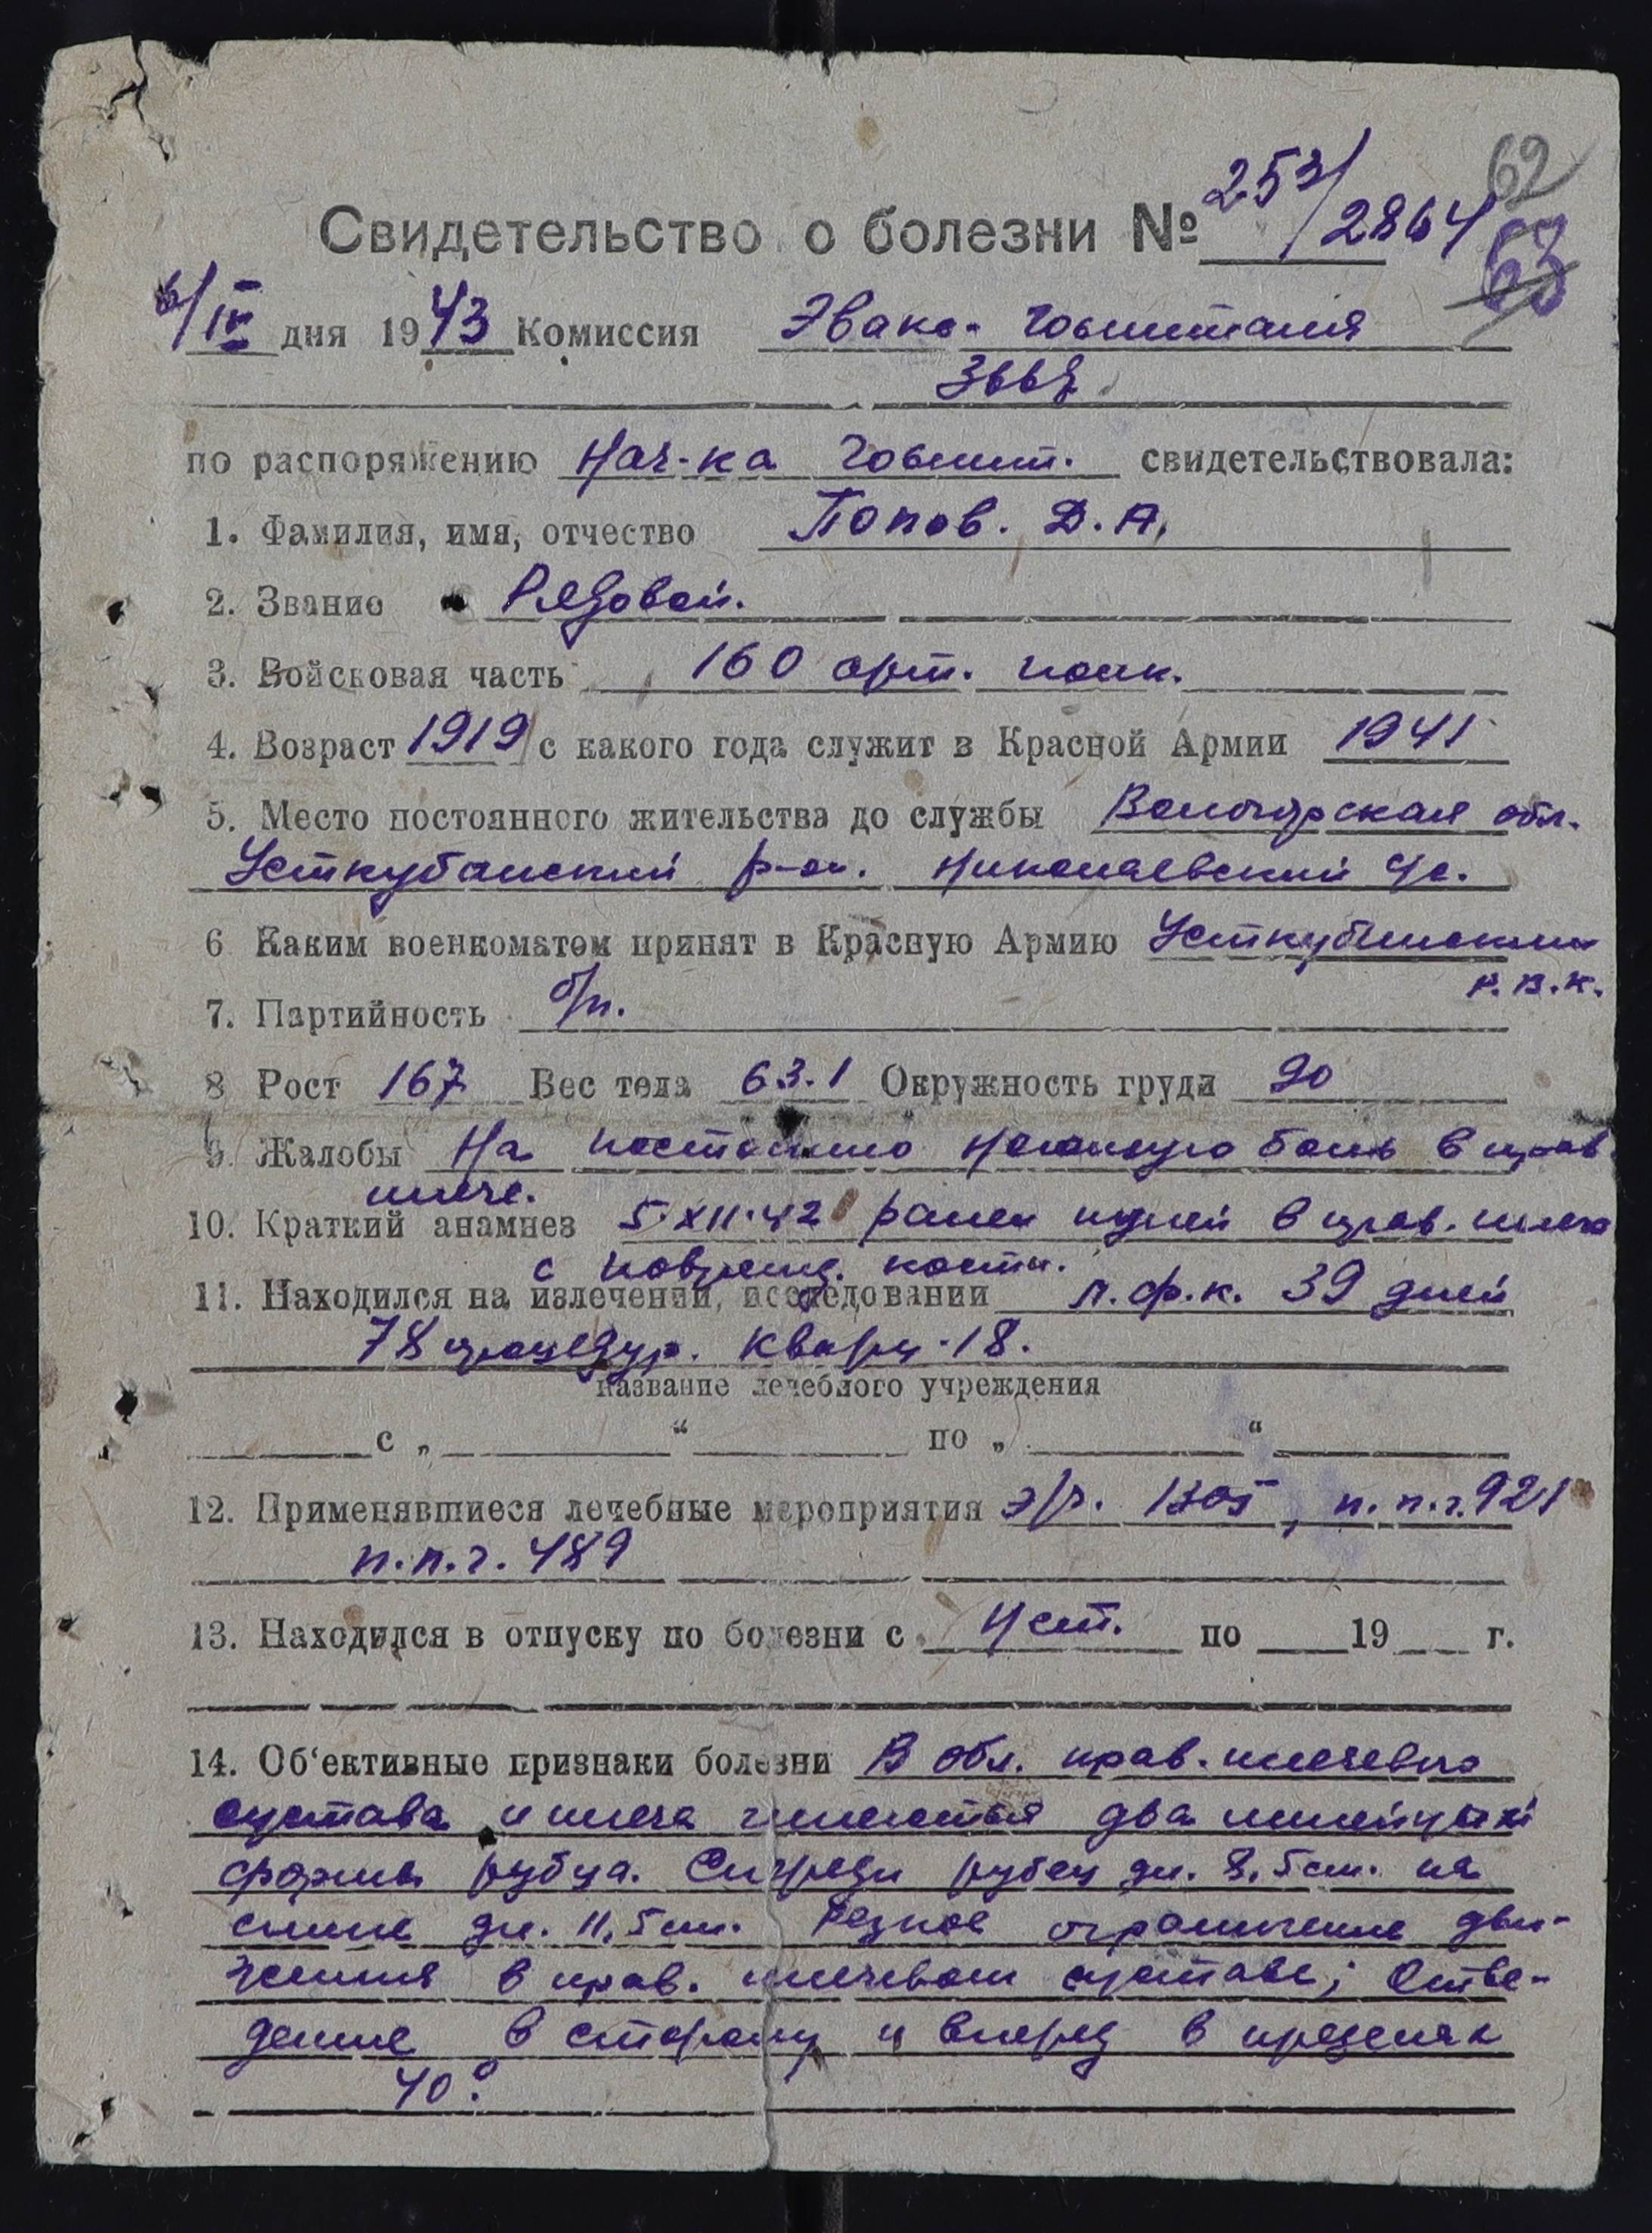 62
Свидетельство о болезни № 253/2864
63
6/IV дня 1943 Комиссия Эвако-госпиталя
3667
по распоряжению Нач-ка госпит. свидетельствовала:
1. Фамилия, имя, отчество Попов. Д.А.
2. Звание Рядовой.
3. Войсковая часть 160 арт. полк.
4. Возраст 1919 с какого года служит в Красной Армии 1941
5. Место постоянного жительства до службы Вологодская обл.
Усткубинский р-он. Николаевский с/с.
6 Каким военкоматом принят в Красную Армию Усткубинским
Р.В.К.
7. Партийность б/п.
8 Рост 167 Вес тела 63.1 Окружность груди 90
9. Жалобы На постоянно ноющую боль в прав.
плече.
10. Краткий анамнез 5.XII.42 ранен пулей в прав. плечо
с поврежд. кости.
11. Находился на излечении, исследовании л.ф.к. 39 дней
78 процедур. Кварц-18.
название лечебного учреждения
с „ “ по „ “
12. Применявшиеся лечебные мероприятия э/г. 1305, п.п.г. 921
п.п.г. 489
13. Находился в отпуску по болезни с Нет. по 19 г.
14. Об‘ективные признаки болезни В обл. прав. плечевого
сустава и плеча имеются два линейной
формы рубца. Спереди рубец дл. 8,5см. на
спине дл. 11,5см. Резкое ограничение дви-
жения в прав. плечевом суставе; Отве-
дение в сторону и вперед в пределах
40°.